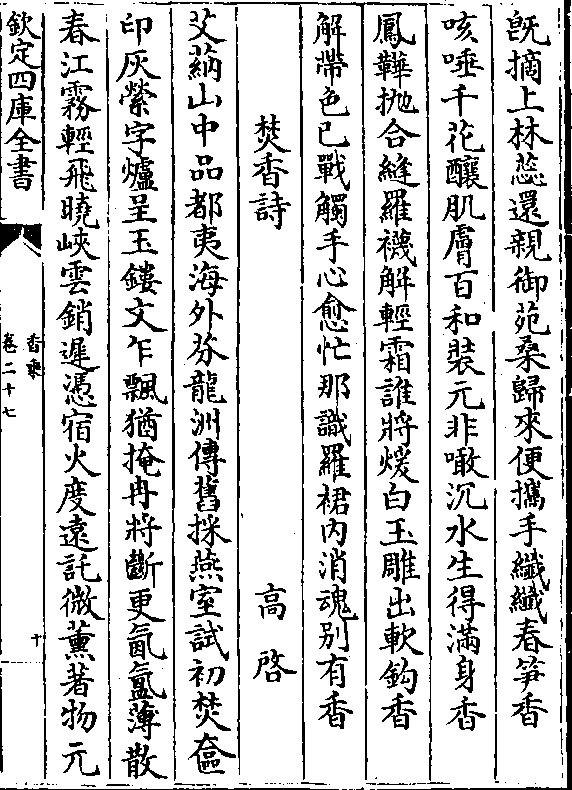 旣摘上林蕊還親御苑桑歸來便攜手纖纖春筍香
咳唾千花釀肌膚百和裝元非噉沉水生得滿身香
鳳鞾抛合縫羅襪解輕霜誰將煖白玉雕出軟鈎香
解帶色已戰觸手心愈忙那識羅裙內消魂别有香
焚香詩　高啓
艾蒳山中品都夷海外芬龍洲傳舊採燕室試初焚奩
印灰縈字爐呈玉鏤文乍飄猶掩冉將斷更氤氳薄散
春江霧輕飛曉峽雲銷遲憑宿火度遠託微薰著物元
欽定四庫全書
香乘
卷二十七
十